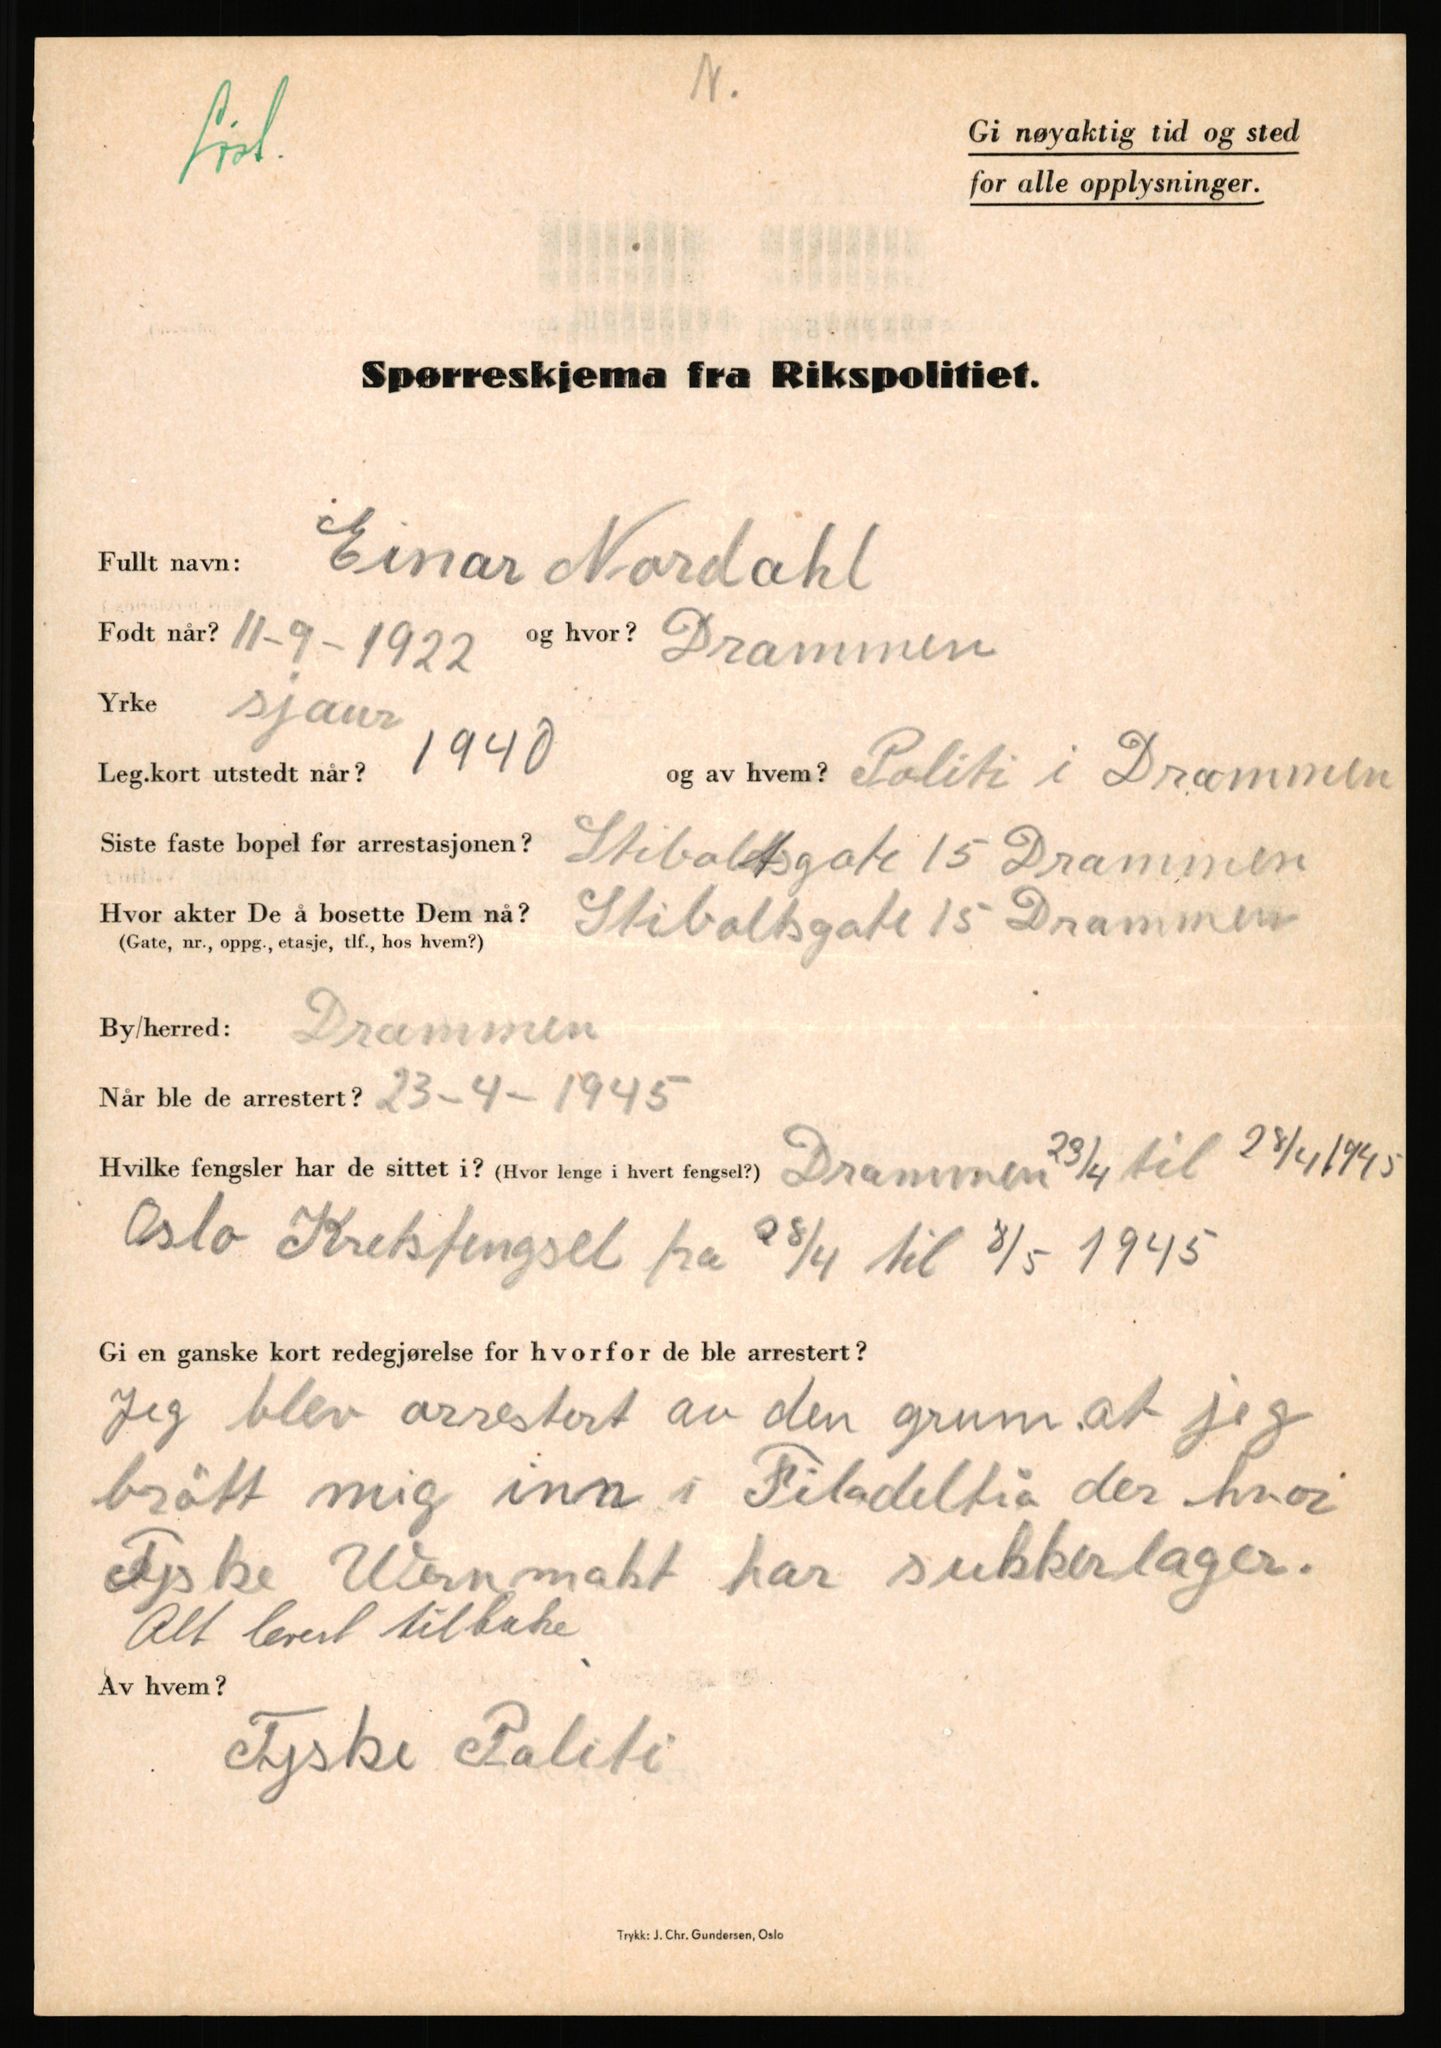 N.
Gi nøyaktig tid og sted
for alle opplysninger.
Spørreskjema fra Rikspolitiet.
Fullt navn: Einar Nordahl
Født når? 11-9-1922 og hvor? Drammen
Yrke sjaur
Leg.kort utstedt når? 1940 og av hvem? Politi i Drammen
Siste faste bopel før arrestasjonen? Stiboltsgate 15 Drammen
Hvor akter De å bosette Dem nå? Stiboltsgate 15 Drammen
(Gate, nr., oppg., etasje, tlf., hos hvem?)
By/herred: Drammen
Når ble de arrestert? 23-4-1945
Hvilke fengsler har de sittet i? (Hvor lenge i hvert fengsel?) Drammen 23/4 til 28/4 1945
Oslo Kretsfengsel fra 28/4 til 8/5 1945
Gi en ganske kort redegjørelse for hvorfor de ble arrestert?
Jeg blev arrestert av den grunn at jeg
brött mig inn i Filadelfia der hvor
Tyske Wernmakt har sukkerlager.
Alt levert tilbake
Av hvem?
Tyske Politi
Trykk: J. Chr. Gundersen, Oslo